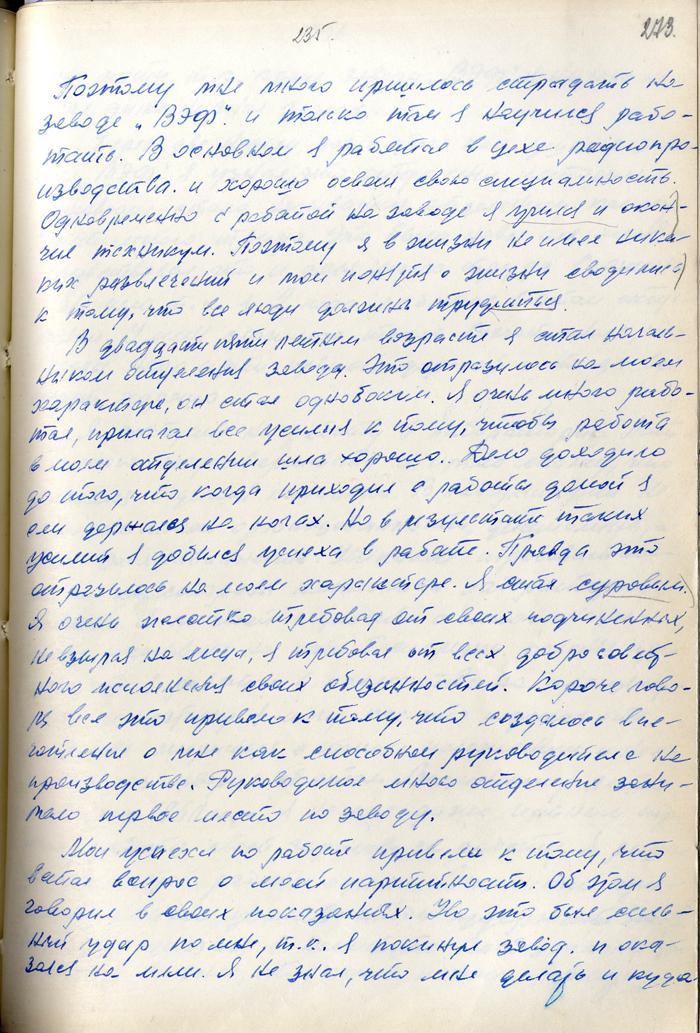 235.
273.
Поэтому мне много пришлось страдать на
заводе „ВЭФ“ и только там я научился рабо-
тать. В основном я работал в цехе радиопро-
изводства. и хорошо освоил свою специальность.
Одновременно с работой на заводе я учился и окон-
чил техникум. Поэтому я в жизни не имел ника-
ких развлечений и мои понятия о жизни сводились
к тому, что все люди должны трудиться.
В двадцати пяти летнем возрасте я стал началь-
ником отделения завода. Это отразилось на моем
характере, он стал однобоким. Я очень много рабо-
тал, прилагал все усилия к тому, чтобы работа
в моем отделении шла хорошо. Дело доходило
до того, что когда приходил с работы домой я
еле держался на ногах. Но в результате таких
усилий я добился успеха в работе. Правда это
отразилось на моем характере. Я стал суровым.
Я очень жестко требовал от своих подчиненных,
не взирая на лица, я требовал от всех добросовест-
ного исполнения своих обязанностей. Короче гово-
ря все это привело к тому, что создалось впе-
чатление о мне как способном руководителе на
производстве. Руководимое мною отделение зани-
мало первое место по заводу.
Мои успехи по работе привели к тому, что
встал вопрос о моей партийности. Об этом я
говорил в своих показаниях. Но это был силь-
ный удар по мне, т.к. я покинул завод. и ока-
зался на мели. Я не знал, что мне делать и куда